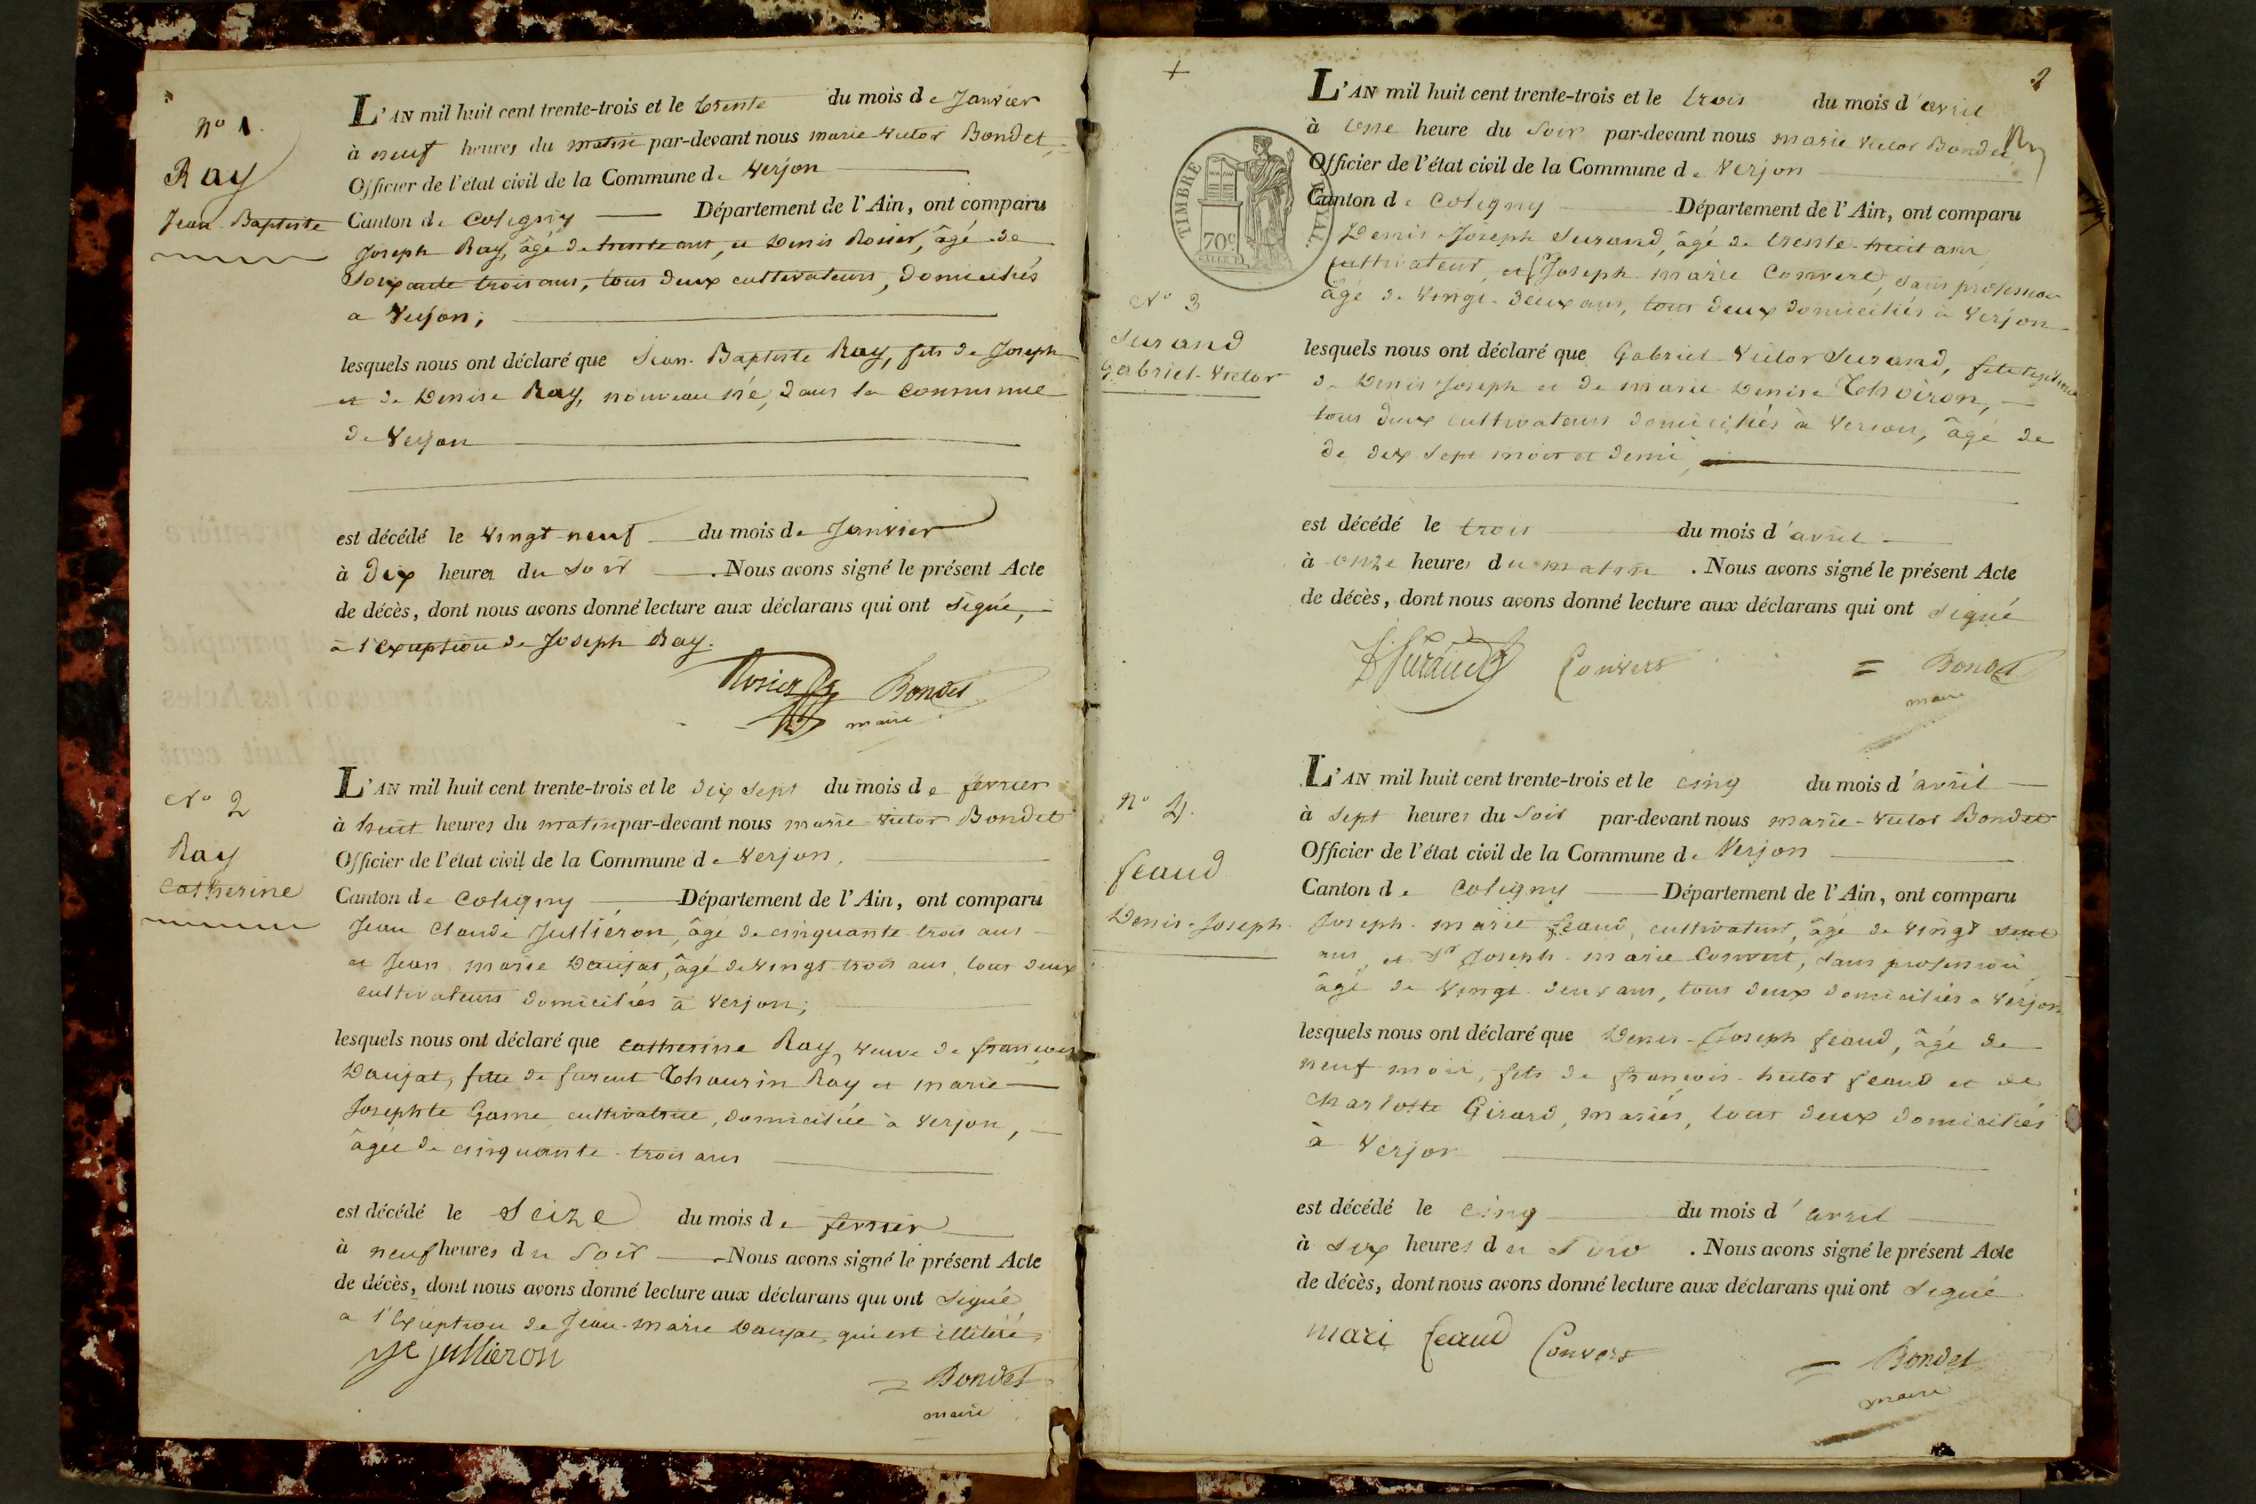 nº 1.
Ray
Jean Baptiste
L'AN mil huit cent trente-trois et le trente du mois de Janvier
à neuf heures du matin par-devant nous marie victor Bondet,
Officier de l'état civil de la Commune de Verjon
Canton de Coligny Département de l'Ain, ont comparu
Joseph Ray, âgé de trente ans, et Denis Rosier, âgé de
soixante trois ans, tous deux cultivateurs, domiciliés
a Verjon;
lesquels nous ont déclaré que Jean-Baptiste Ray, fils de Joseph
et de Denise Ray, nouveau né, dans la commune
de Verjon
est décédé le vingt-neuf du mois de Janvier
à dix heures du soir. Nous avons signé le présent Acte
de décès, dont nous avons donné lecture aux déclarans qui ont signé,
à l'exception de Joseph Ray.
Rosier Bondet
maire
Nº 2
Ray
Catherine
L'AN mil huit cent trente-trois et le dix sept du mois de fevrier
à huit heures du matin par-devant nous marie victor Bondet
Officier de l'état civil de la Commune de Verjon,
Canton de Coligny Département de l'Ain, ont comparu
Jean Claude Jullieron, âgé de cinquante trois ans
et Jean marie Daujat, âgé de vingt trois ans, tous deux
cultivateurs domiciliés à Verjon;
lesquels nous ont déclaré que Catherine Ray, veuve de françois
Daujat, fille de furent Thaurin Ray et marie
Josephte Game cultivatrice, domiciliée à Verjon,
âgée de cinquante trois ans
est décédé le Seize du mois de fevrier
à neuf heures du soir Nous avons signé le présent Acte
de décès, dont nous avons donné lecture aux déclarans qui ont signé
a l'exception de Jean-marie Daujat, qui est illitéré,
JC jullieron
Bondet
maire
2
TIMBRE ROYAL.
70c
L'AN mil huit cent trente-trois et le trois du mois d'avril
à une heure du soir par-devant nous marie victor Bondet,
Officier de l'état civil de la Commune de Verjon
Canton de Coligny Département de l'Ain, ont comparu
Denis Joseph Surand, âgé de trente-huit ans,
cultivateur, et Sr Joseph marie Convert, sans profession
âgé de vingt-deux ans, tous deux domiciliés à Verjon
Nº 3
Surand
Gabriel-Victor
lesquels nous ont déclaré que Gabriel-Victor Surand, fils légitime
de Denis Joseph et de marie Denise Thoiron,
tous deux cultivateurs domiciliés à Verjon, âgé de
de dix sept mois et demi,
est décédé le trois du mois d'avril
à onze heures du matin. Nous avons signé le présent Acte
de décès, dont nous avons donné lecture aux déclarans qui ont signé
Surand Convers = Bondet
maire
nº 4.
feaud
Denis-Joseph
L'AN mil huit cent trente-trois et le cinq du mois d'avril
à sept heures du soir par-devant nous marie-victor Bondet
Officier de l'état civil de la Commune de Verjon
Canton de Coligny Département de l'Ain, ont comparu
Joseph marie feaud, cultivateur, âgé de vingt sept
ans, et Sr Joseph-marie Convert, sans profession
âgé de vingt deux ans, tous deux domiciliés a Verjon
lesquels nous ont déclaré que Denis-Joseph feaud, âgé de
neuf mois, fils de françois-hector feaud et de
Charlotte Girard, mariés, tous deux domiciliés
à Verjon
est décédé le cinq du mois d'avril
à six heures du soir. Nous avons signé le présent Acte
de décès, dont nous avons donné lecture aux déclarans qui ont signé
mari feaud Convers = Bondet
maire